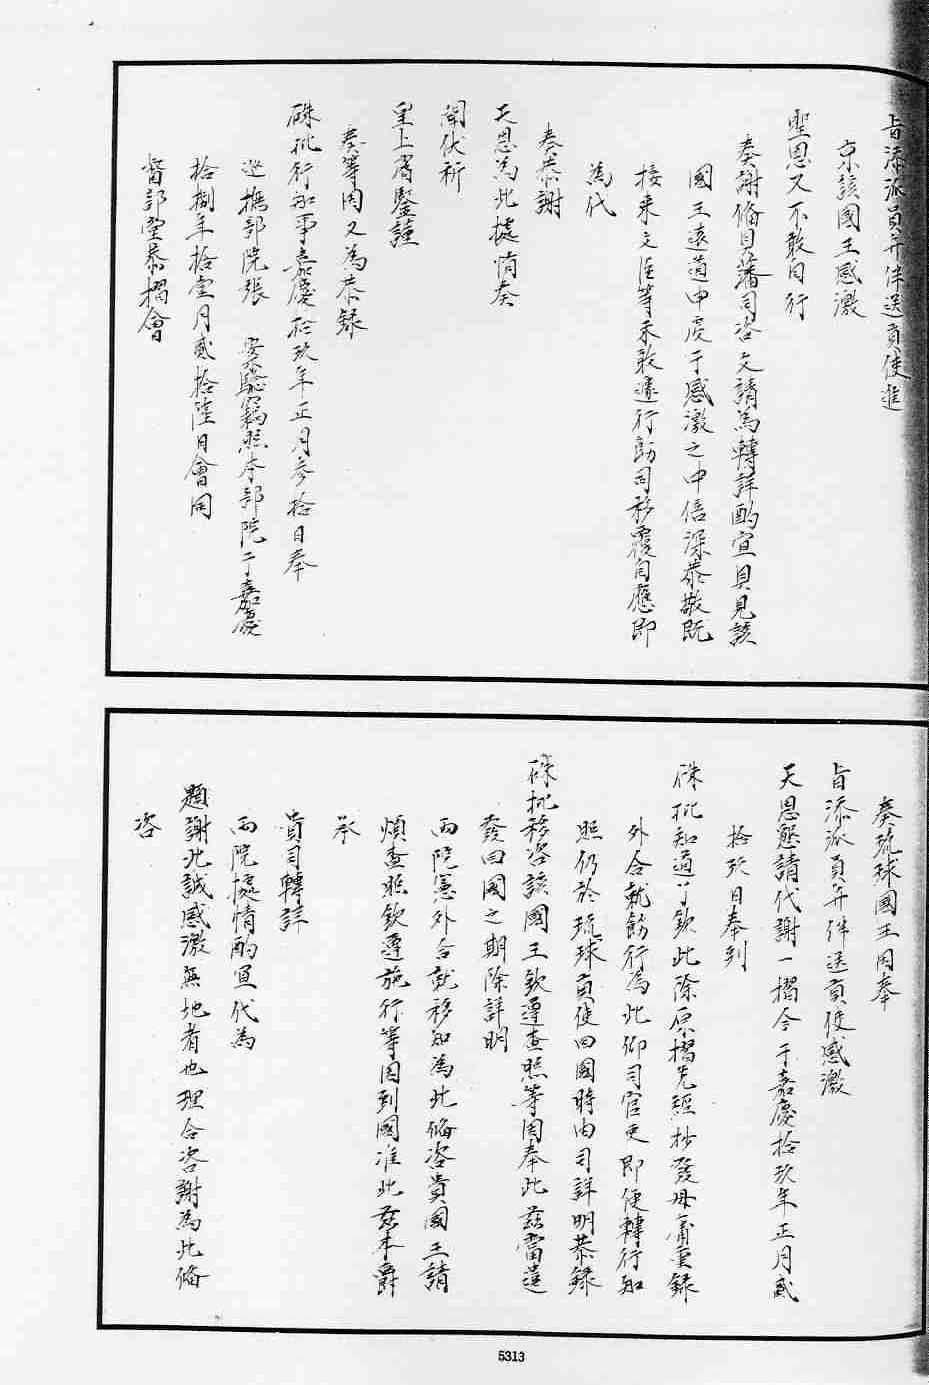 旨添派員弁伴送貢使進
京該國王感激
聖恩又不敢自行
奏謝備具藩司咨文請為轉詳酌宜具見該
國王遠道申虔于感激之中倍深恭敬既
接來文臣等未敢遽行飭司移覆自應即
為代
奏恭謝
天恩為此據情奏
聞伏祈
皇上睿鑒謹
奏等因又為恭錄
硃批行知事嘉慶拾玖年正月參拾日奉
巡撫部院張 案驗竊照本部院于嘉慶
拾捌年拾壹月貳拾陸日會同
督部堂恭摺會
奏琉球國王因奉
旨添派員弁伴送貢使感激
天恩懇請代謝一摺今于嘉慶拾玖年正月貳
拾玖日奉到
硃批知道了欽此除原摺先經抄發毋庸重錄
外合就飭行為此仰司官吏即便轉行知
照仍於琉球貢使回國時內司詳明恭錄
硃批移咨該國王欽遵查照等因奉此茲當遣
發回國之期除詳明
兩院憲外合就移知為此備咨貴國王請
煩查照欽遵施行等因到國准此茲本爵
承
貴司轉詳
兩院據情酌宜代為
題謝此誠感激無地者也理合咨謝為此備
咨
5313